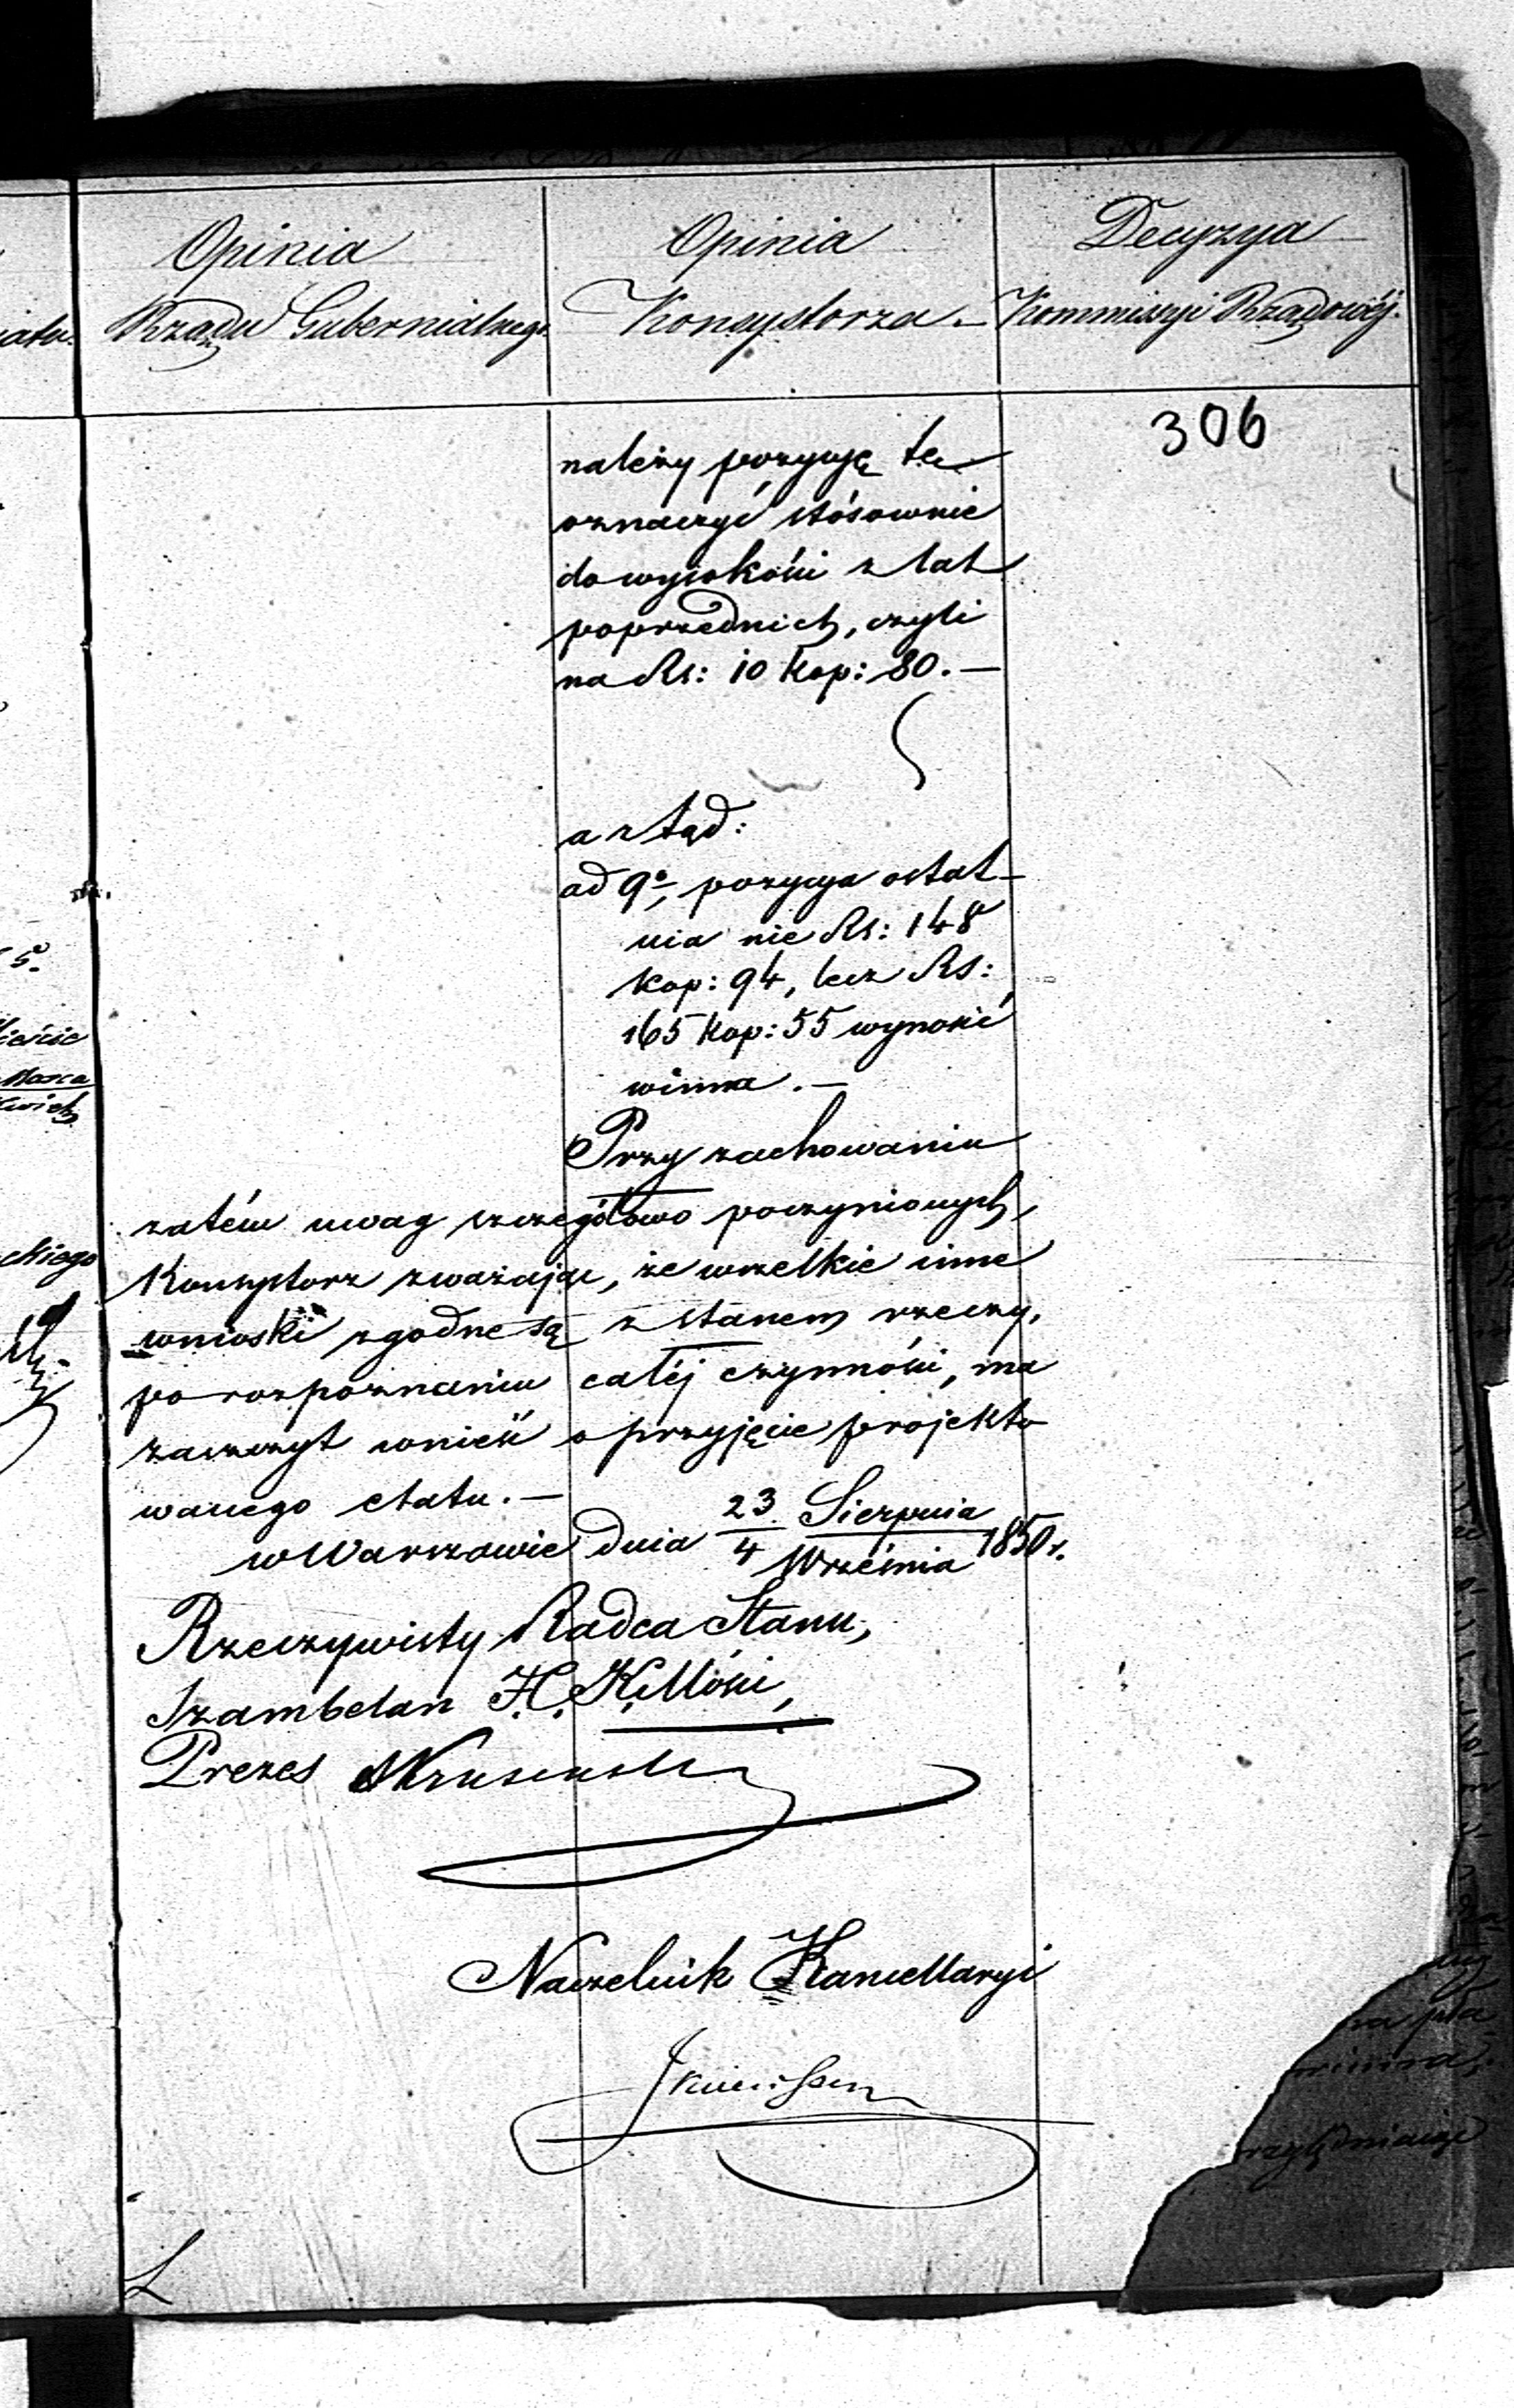 Opinia
Rządu Gubernialnego.
Opinia
Konsystorza.
Decyzya
Kommissyi Rządowéj.
306
należy pozycyę tę
oznaczyć stósownie
do wysokości z lat
poprzednich, czyli
na Rs: 10 kop: 80.—
a ztąd:
ad 9º, pozycya ostat-
nia nie Rs: 148
kop: 94, lecz Rs:
165 kop: 55 wynosić
winna.—
Przy zachowaniu
zatém uwag szczegółowo poczynionych,
Konsystorz zważając, że wszelkie inne
wnioski zgodne są z stanem rzeczy,
po rozpoznaniu całéj czynności, ma
zaszczyt wnieść o przyjęcie projekto
wanego etatu.—
w Warszawie dnia 23/4 Sierpnia/Września 1850 r.
Rzeczywisty Radca Stanu,
Szambelan
Prezes
Naczelnik Kancellaryi